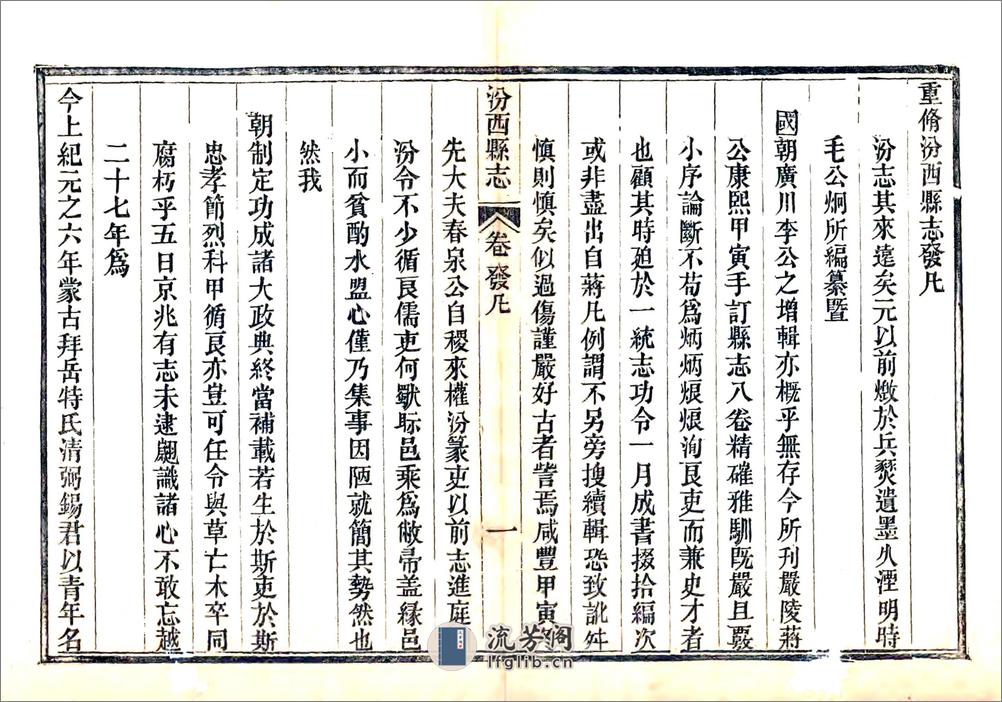 重脩汾西縣志發凡
汾志其來遠矣元以前燬於兵燹遺墨久湮明時
毛公炯所編纂暨
國朝廣川李公之增輯亦概乎無存今所刊嚴陵蔣
公康熙甲寅手訂縣志八卷精確雅馴旣嚴且覈
小序論斷不苟爲炳炳烺烺洵良吏而兼史才者
也顧其時廹於一統志功令一月成書掇拾編次
或非盡出自蔣凡例謂不另旁搜續輯恐致訛舛
慎則慎矣似過傷謹嚴好古者訾焉咸豐甲寅
汾西縣志
卷
發凡
一
先大夫春泉公自稷來權汾篆吏以前志進庭
汾令不少循良儒吏何獨眎邑乘爲敝帚盖緣邑
小而貧酌水盟心僅乃集事因陋就簡其勢然也
然我
朝制定功成諸大政典終當補載若生於斯吏於斯
忠孝節烈科甲循良亦豈可任令與草亡木卒同
腐朽乎五日京兆有志未逮勉識諸心不敢忘越
二十七年爲
今上紀元之六年蒙古拜岳特氏清弼錫君以青年名
流芳閣
lfglib.cn